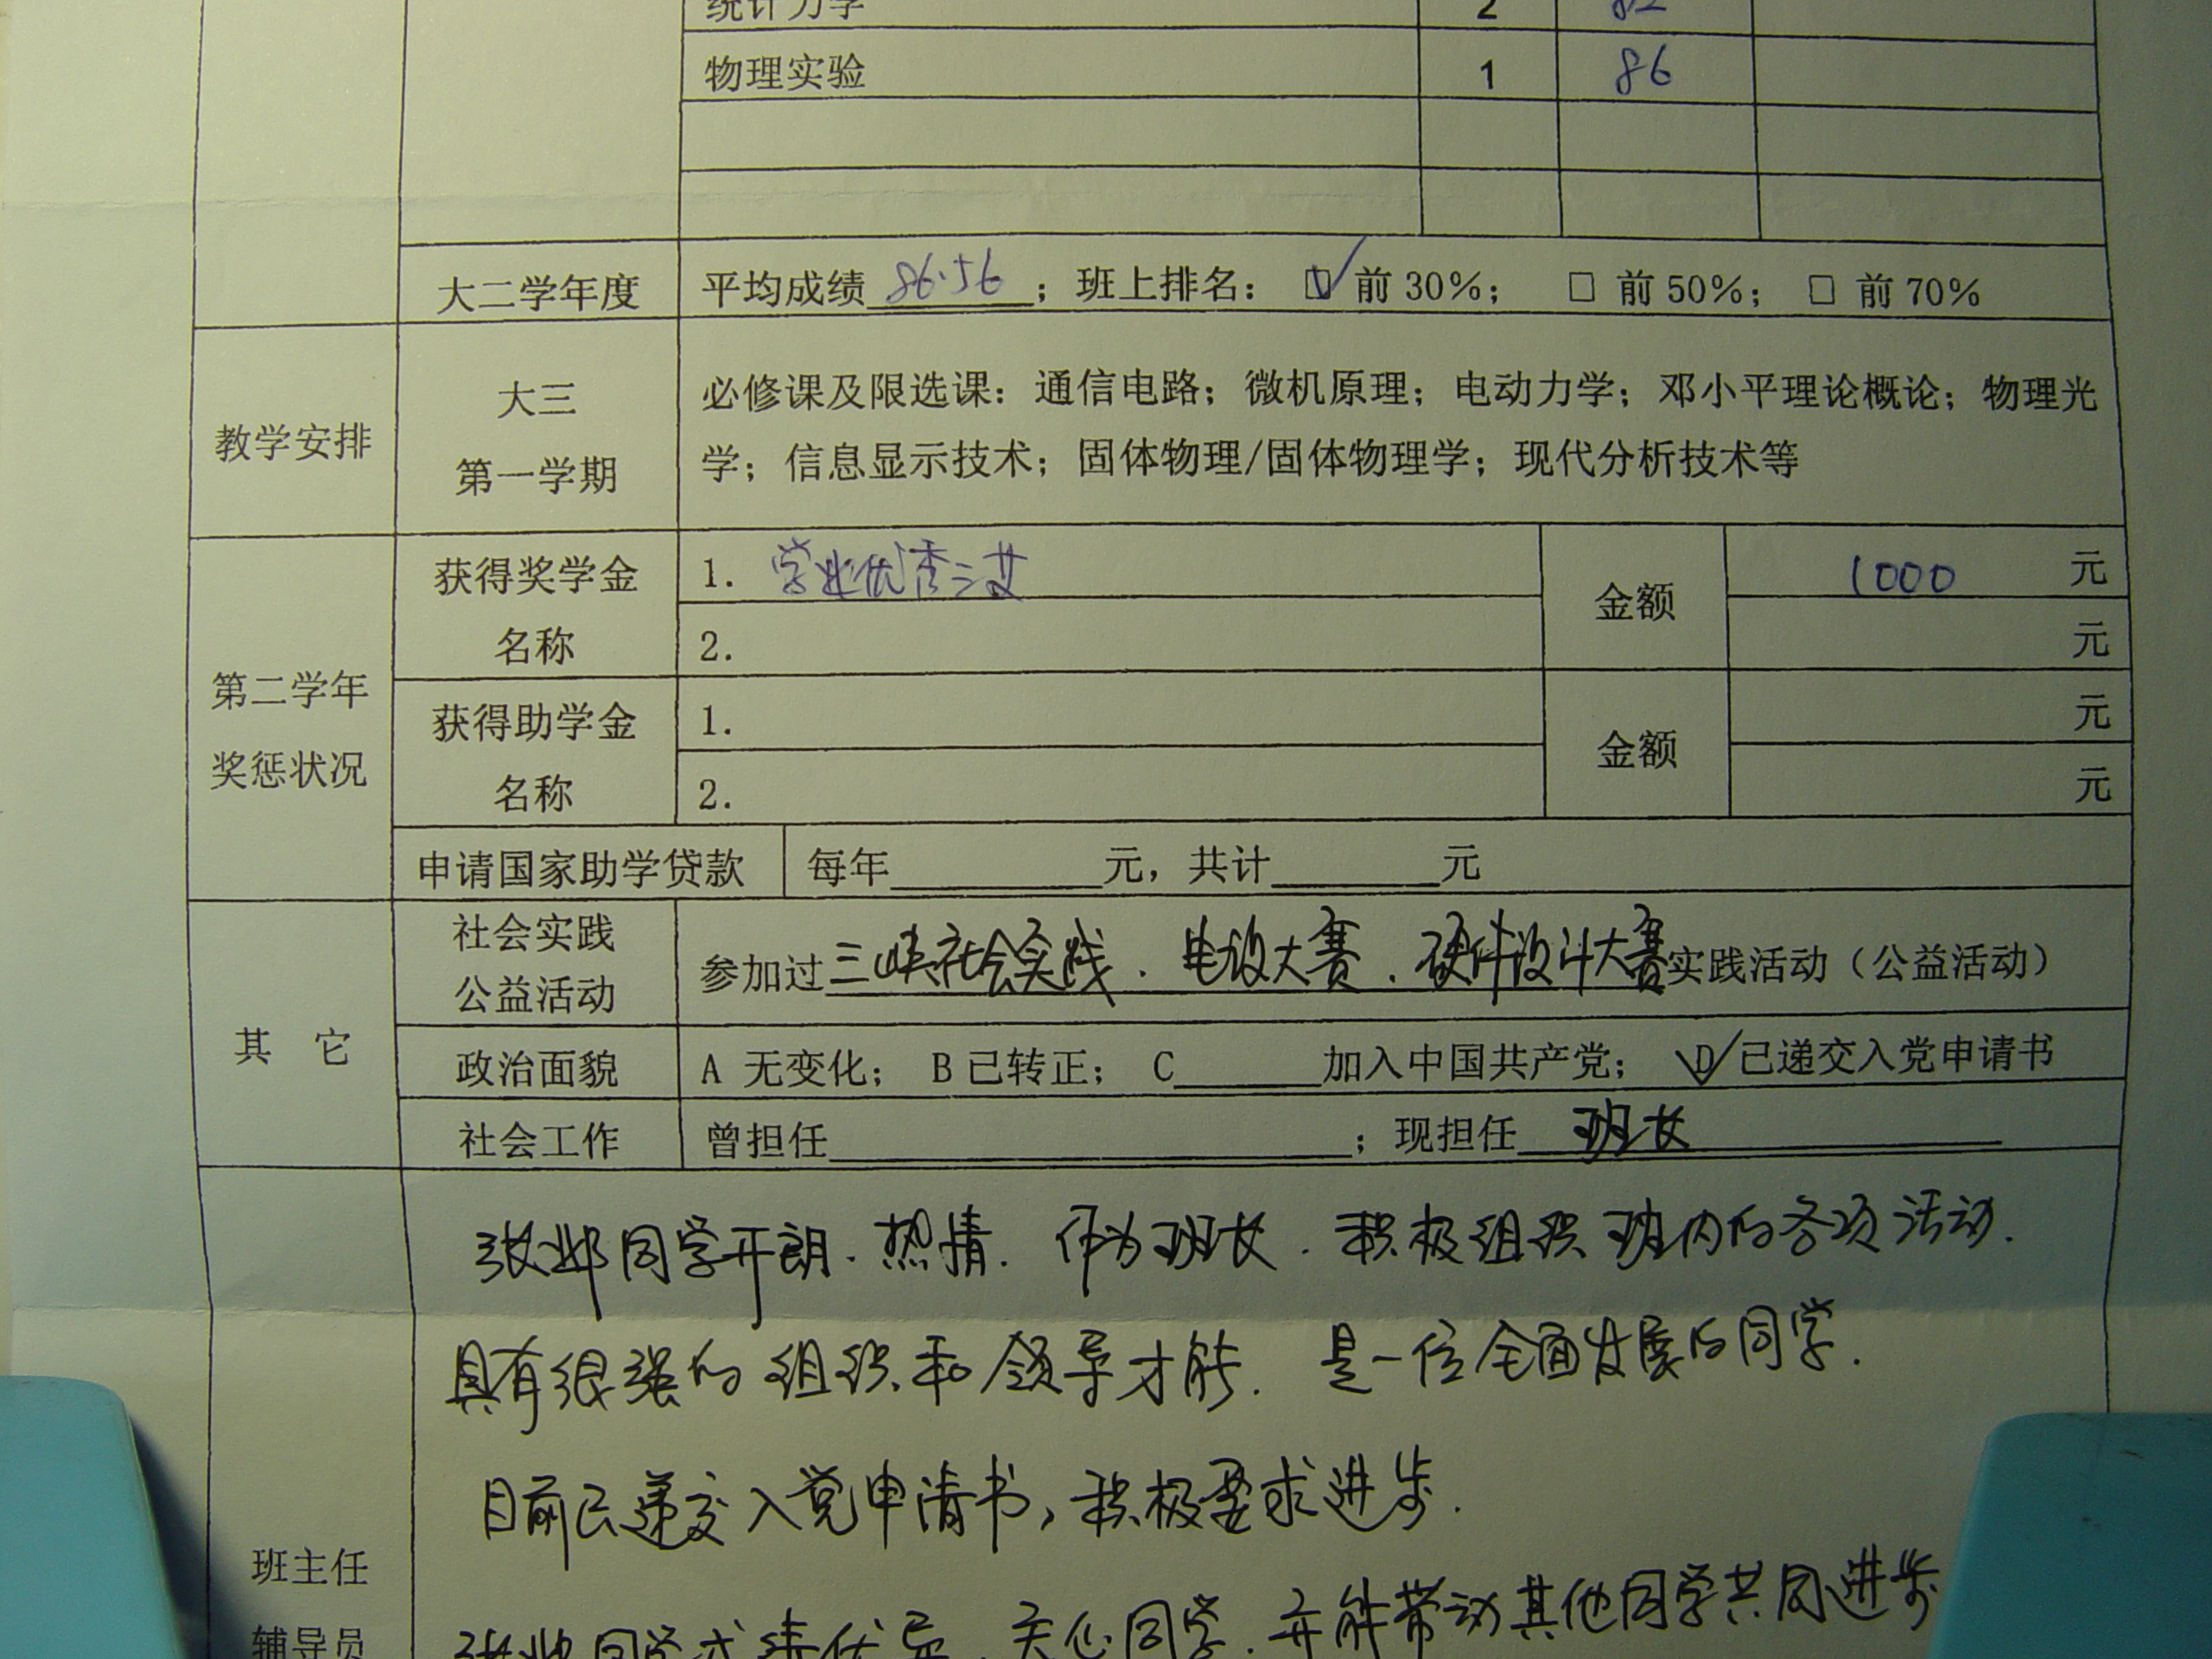 统计力学 2 82
物理实验 1 86
大二学年度 平均成绩 86.56 ；班上排名：☑ 前 30%； □ 前 50%； □ 前 70%
教学安排
大三
第一学期
必修课及限选课：通信电路；微机原理；电动力学；邓小平理论概论；物理光
学；信息显示技术；固体物理/固体物理学；现代分析技术等
第二学年
奖惩状况
获得奖学金
名称
1. 学业优秀三等
2.
金额
1000 元
元
获得助学金
名称
1.
2.
金额
元
元
申请国家助学贷款 每年________元，共计________元
其 它
社会实践
公益活动
参加过三峡社会实践．电设大赛．硬件设计大赛实践活动（公益活动）
政治面貌 A 无变化； B 已转正； C______加入中国共产党； D 已递交入党申请书
社会工作 曾担任________；现担任 班长
班主任
辅导员
张 同学开朗．热情．作为班长．积极组织班内的各项活动．
具有很强的组织和领导才能．是一位全面发展的同学．
目前已递交入党申请书，积极要求进步．
张 同学成绩优异．关心同学．并能带动其他同学共同进步